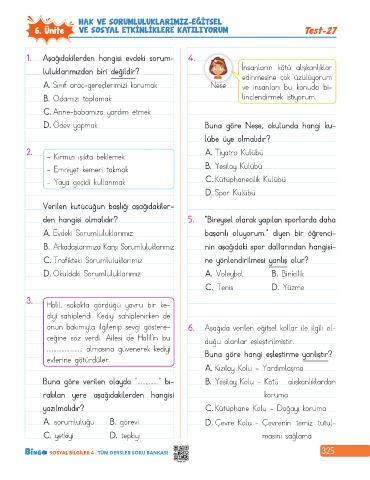 6. Ünite
HAK VE SORUMLULUKLARIMIZ-EĞİTSEL
VE SOSYAL ETKİNLİKLERE KATILIYORUM
Test-27
1. Aşağıdakilerden hangisi evdeki sorum-
luluklarımızdan biri değildir?
A. Sınıf araç-gereçlerimizi korumak
B. Odamızı toplamak
C. Anne-babamıza yardım etmek
D. Ödev yapmak
2.
- Kırmızı ışıkta beklemek
- Emniyet kemeri takmak
- Yaya geçidi kullanmak
Verilen kutucuğun başlığı aşağıdakiler-
den hangisi olmalıdır?
A. Evdeki Sorumluluklarımız
B. Arkadaşlarımıza Karşı Sorumluluklarımız
C. Trafikteki Sorumluluklarımız
D. Okuldaki Sorumluluklarımız
3.
Halil, sokakta gördüğü yavru bir ke-
diyi sahiplendi. Kediyi sahiplenirken de
onun bakımıyla ilgilenip sevgi göstere-
ceğine söz verdi. Ailesi de Halil'in bu
.................... almasına güvenerek kediyi
evlerine götürdüler.
Buna göre verilen olayda "............" bı-
rakılan yere aşağıdakilerden hangisi
yazılmalıdır?
A. sorumluluğu B. görevi
C. yetkiyi D. tepkiyi
4.
İnsanların kötü alışkanlıklar
edinmesine çok üzülüyorum
ve insanları bu konuda bi-
linçlendirmek istiyorum.
Neşe
Buna göre Neşe, okulunda hangi ku-
lübe üye olmalıdır?
A. Tiyatro Kulübü
B. Yeşilay Kulübü
C. Kütüphanecilik Kulübü
D. Spor Kulübü
5. "Bireysel olarak yapılan sporlarda daha
başarılı oluyorum." diyen bir öğrenci-
nin aşağıdaki spor dallarından hangisi-
ne yönlendirilmesi yanlış olur?
A. Voleybol B. Binicilik
C. Tenis D. Yüzme
6. Aşağıda verilen eğitsel kollar ile ilgili ol-
duğu alanlar eşleştirilmiştir.
Buna göre hangi eşleştirme yanlıştır?
A. Kızılay Kolu - Yardımlaşma
B. Yeşilay Kolu - Kötü alışkanlıklardan
koruma
C. Kütüphane Kolu - Doğayı koruma
D. Çevre Kolu - Çevrenin temiz tutul-
masını sağlama
BİNGO SOSYAL BİLGİLER 4 - TÜM DERSLER SORU BANKASI
325